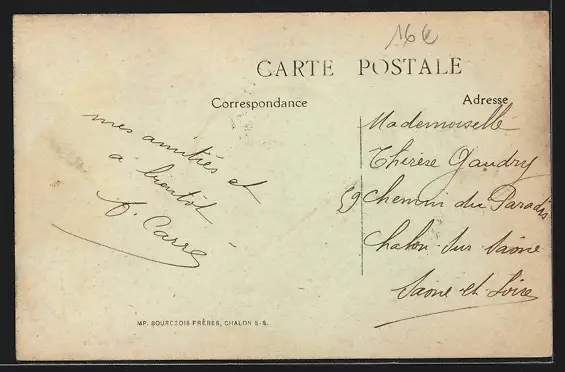 16€
CARTE POSTALE
Correspondance
Adresse
mes amitiés et
a bientôt
A. Carre
Mademoiselle
Thérèse Gaudry
59 Chemin du Paradis
Chalon-sur Saône
Saone-et-Loire
IMP. BOURGEOIS FRÈRES, CHALON S-S.